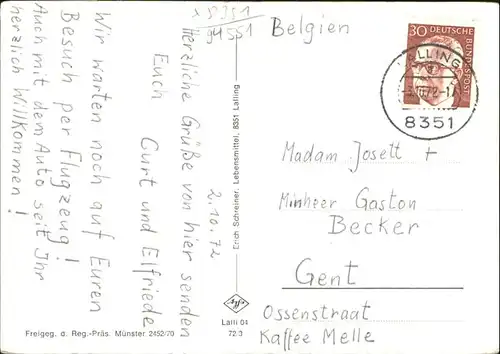 x 8351
94551
Belgien
30 DEUTSCHE
BUNDESPOST
LALLING
-3.10.72-17
8351
Herzliche Grüße von hier senden
Euch
Curt und Elfriede
2.10.72
Wir warten noch auf Euren
Besuch per Flugzeug!
Auch mit dem Auto seit Ihr
herzlich Willkommen!
Erich Schreiner, Lebensmittel, 8351 Lalling
Madam Josett +
Minheer Gaston
Becker
Gent
Ossenstraat
Kaffee Melle
Lalli 04
72.3
Freigeg. d. Reg.-Präs. Münster 2452/70